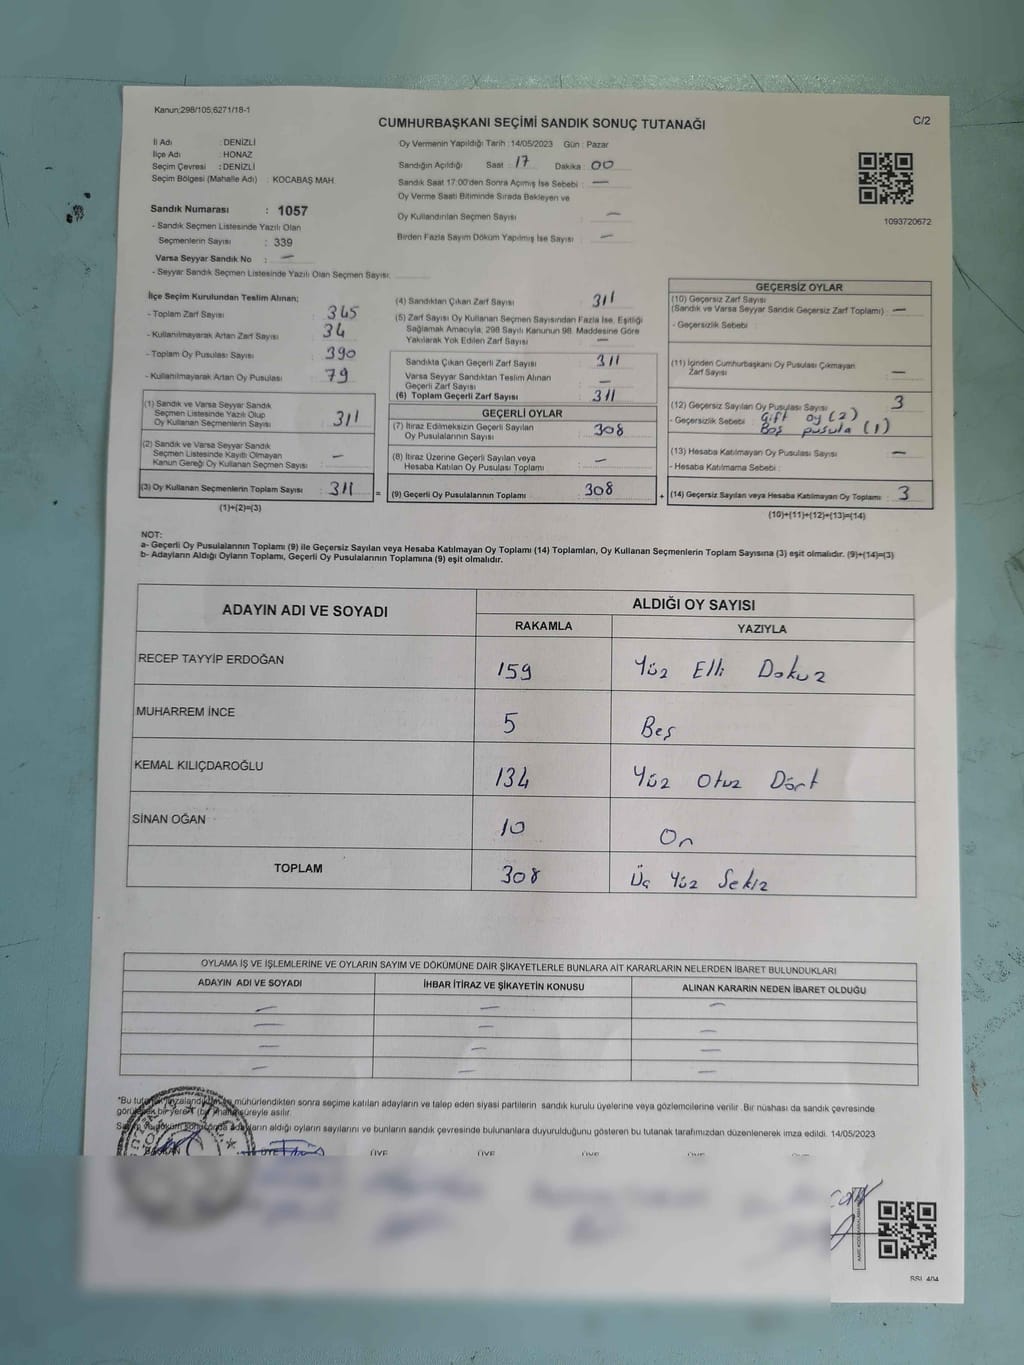 Kanun:298/105,6271/18-1
CUMHURBAŞKANI SEÇİMİ SANDIK SONUÇ TUTANAĞI
C/2
İl Adı : DENİZLİ
İlçe Adı : HONAZ
Seçim Çevresi : DENİZLİ
Seçim Bölgesi (Mahalle Adı) : KOCABAŞ MAH.
Sandık Numarası : 1057
- Sandık Seçmen Listesinde Yazılı Olan
Seçmenlerin Sayısı : 339
Varsa Seyyar Sandık No : —
- Seyyar Sandık Seçmen Listesinde Yazılı Olan Seçmen Sayısı:
Oy Vermenin Yapıldığı Tarih : 14/05/2023 Gün : Pazar
Sandığın Açıldığı Saat : 17 Dakika : 00
Sandık Saat 17:00'den Sonra Açılmış İse Sebebi : —
Oy Verme Saati Bitiminde Sırada Bekleyen ve
Oy Kullandırılan Seçmen Sayısı : —
Birden Fazla Sayım Döküm Yapılmış İse Sayısı : —
1093720672
İlçe Seçim Kurulundan Teslim Alınan;
- Toplam Zarf Sayısı : 345
- Kullanılmayarak Artan Zarf Sayısı : 34
- Toplam Oy Pusulası Sayısı : 390
- Kullanılmayarak Artan Oy Pusulası : 79
(1) Sandık ve Varsa Seyyar Sandık
Seçmen Listesinde Yazılı Olup
Oy Kullanan Seçmenlerin Sayısı : 311
(2) Sandık ve Varsa Seyyar Sandık
Seçmen Listesinde Kayıtlı Olmayan
Kanun Gereği Oy Kullanan Seçmen Sayısı : —
(3) Oy Kullanan Seçmenlerin Toplam Sayısı : 311 =
(1)+(2)=(3)
(4) Sandıktan Çıkan Zarf Sayısı : 311
(5) Zarf Sayısı Oy Kullanan Seçmen Sayısından Fazla İse, Eşitliği
Sağlamak Amacıyla, 298 Sayılı Kanunun 98. Maddesine Göre
Yakılarak Yok Edilen Zarf Sayısı : —
Sandıkta Çıkan Geçerli Zarf Sayısı : 311
Varsa Seyyar Sandıktan Teslim Alınan
Geçerli Zarf Sayısı : —
(6) Toplam Geçerli Zarf Sayısı : 311
GEÇERLİ OYLAR
(7) İtiraz Edilmeksizin Geçerli Sayılan
Oy Pusulalarının Sayısı : 308
(8) İtiraz Üzerine Geçerli Sayılan veya
Hesaba Katılan Oy Pusulası Toplamı : —
(9) Geçerli Oy Pusulalarının Toplamı : 308 +
GEÇERSİZ OYLAR
(10) Geçersiz Zarf Sayısı
(Sandık ve Varsa Seyyar Sandık Geçersiz Zarf Toplamı) : —
- Geçersizlik Sebebi :
(11) İçinden Cumhurbaşkanı Oy Pusulası Çıkmayan
Zarf Sayısı : —
(12) Geçersiz Sayılan Oy Pusulası Sayısı : 3
- Geçersizlik Sebebi : Çift oy (2)
Boş pusula (1)
(13) Hesaba Katılmayan Oy Pusulası Sayısı : —
- Hesaba Katılmama Sebebi :
(14) Geçersiz Sayılan veya Hesaba Katılmayan Oy Toplamı : 3
(10)+(11)+(12)+(13)=(14)
NOT:
a- Geçerli Oy Pusulalarının Toplamı (9) ile Geçersiz Sayılan veya Hesaba Katılmayan Oy Toplamı (14) Toplamları, Oy Kullanan Seçmenlerin Toplam Sayısına (3) eşit olmalıdır. (9)+(14)=(3)
b- Adayların Aldığı Oyların Toplamı, Geçerli Oy Pusulalarının Toplamına (9) eşit olmalıdır.
ADAYIN ADI VE SOYADI ALDIĞI OY SAYISI
RAKAMLA YAZIYLA
RECEP TAYYİP ERDOĞAN 159 Yüz Elli Dokuz
MUHARREM İNCE 5 Beş
KEMAL KILIÇDAROĞLU 134 Yüz Otuz Dört
SİNAN OĞAN 10 On
TOPLAM 308 Üç Yüz Sekiz
OYLAMA İŞ VE İŞLEMLERİNE VE OYLARIN SAYIM VE DÖKÜMÜNE DAİR ŞİKAYETLERLE BUNLARA AİT KARARLARIN NELERDEN İBARET BULUNDUKLARI
ADAYIN ADI VE SOYADI İHBAR İTİRAZ VE ŞİKAYETİN KONUSU ALINAN KARARIN NEDEN İBARET OLDUĞU
— — —
— — —
— — —
— — —
*Bu mühürlendikten sonra seçime katılan adayların ve talep eden siyasi partilerin sandık kurulu üyelerine veya gözlemcilerine verilir. Bir nüshası da sandık çevresinde
bir yere süreyle asılır.
aldığı oyların sayılarını ve bunların sandık çevresinde bulunanlara duyurulduğunu gösteren bu tutanak tarafımızdan düzenlenerek imza edildi. 14/05/2023
BAŞKAN ÜYE ÜYE ÜYE ÜYE